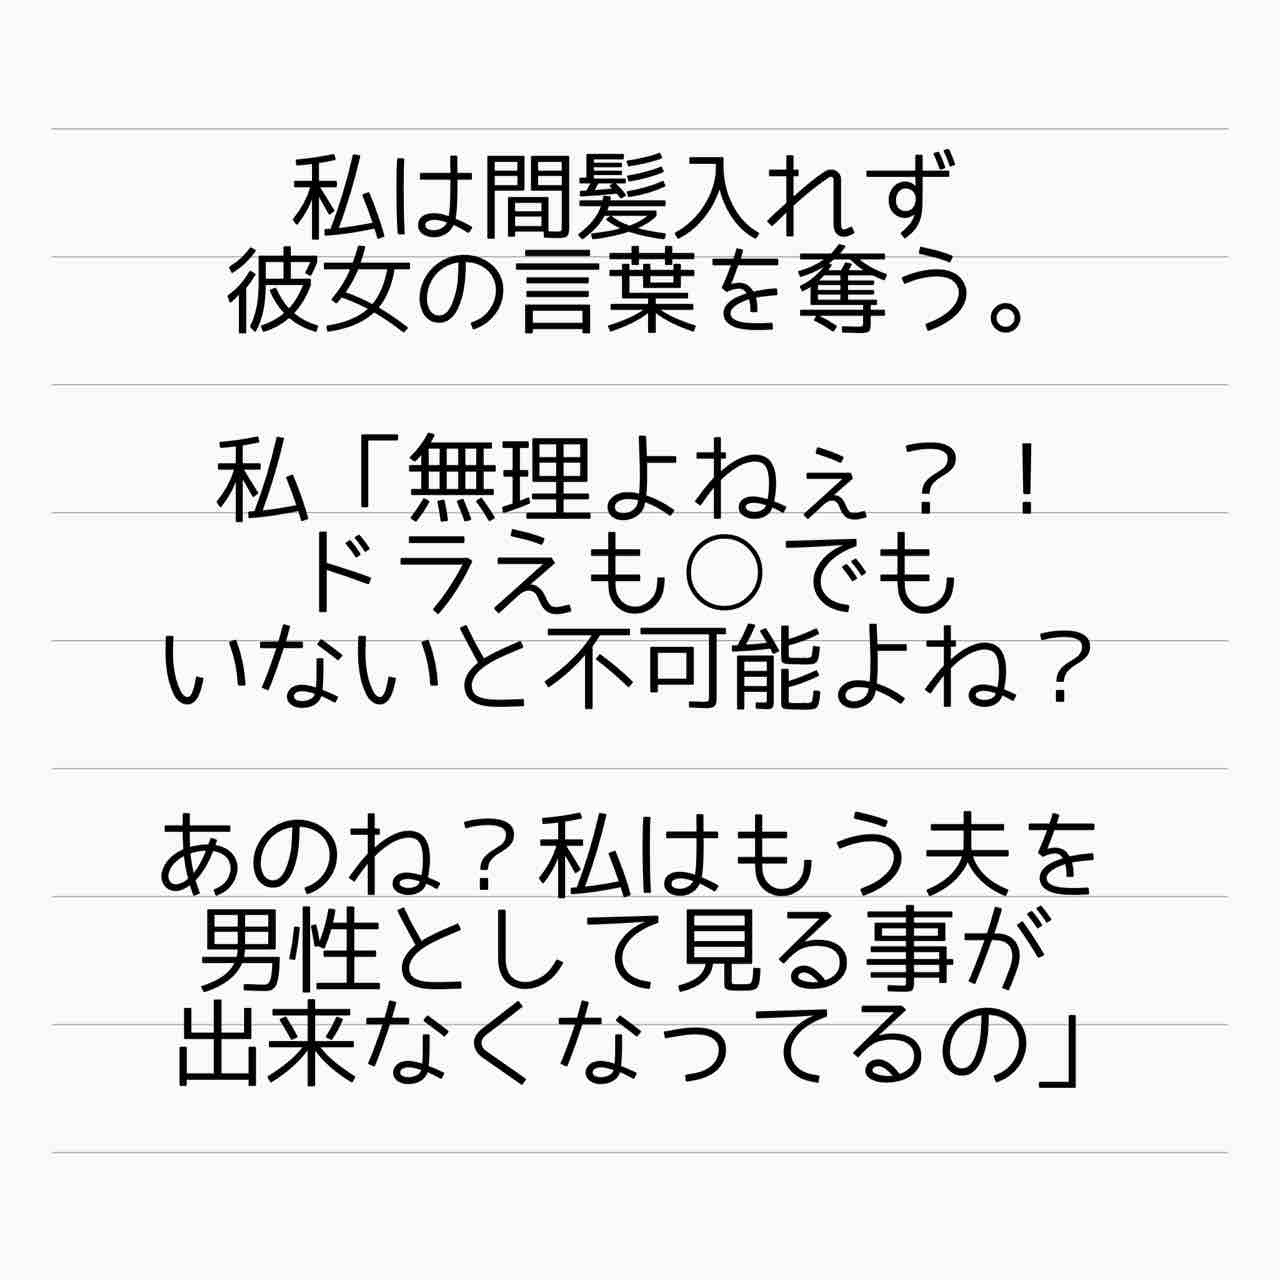 私は間髪入れず
彼女の言葉を奪う。
私「無理よねぇ？！
ドラえも○でも
いないと不可能よね？
あのね？私はもう夫を
男性として見る事が
出来なくなってるの」